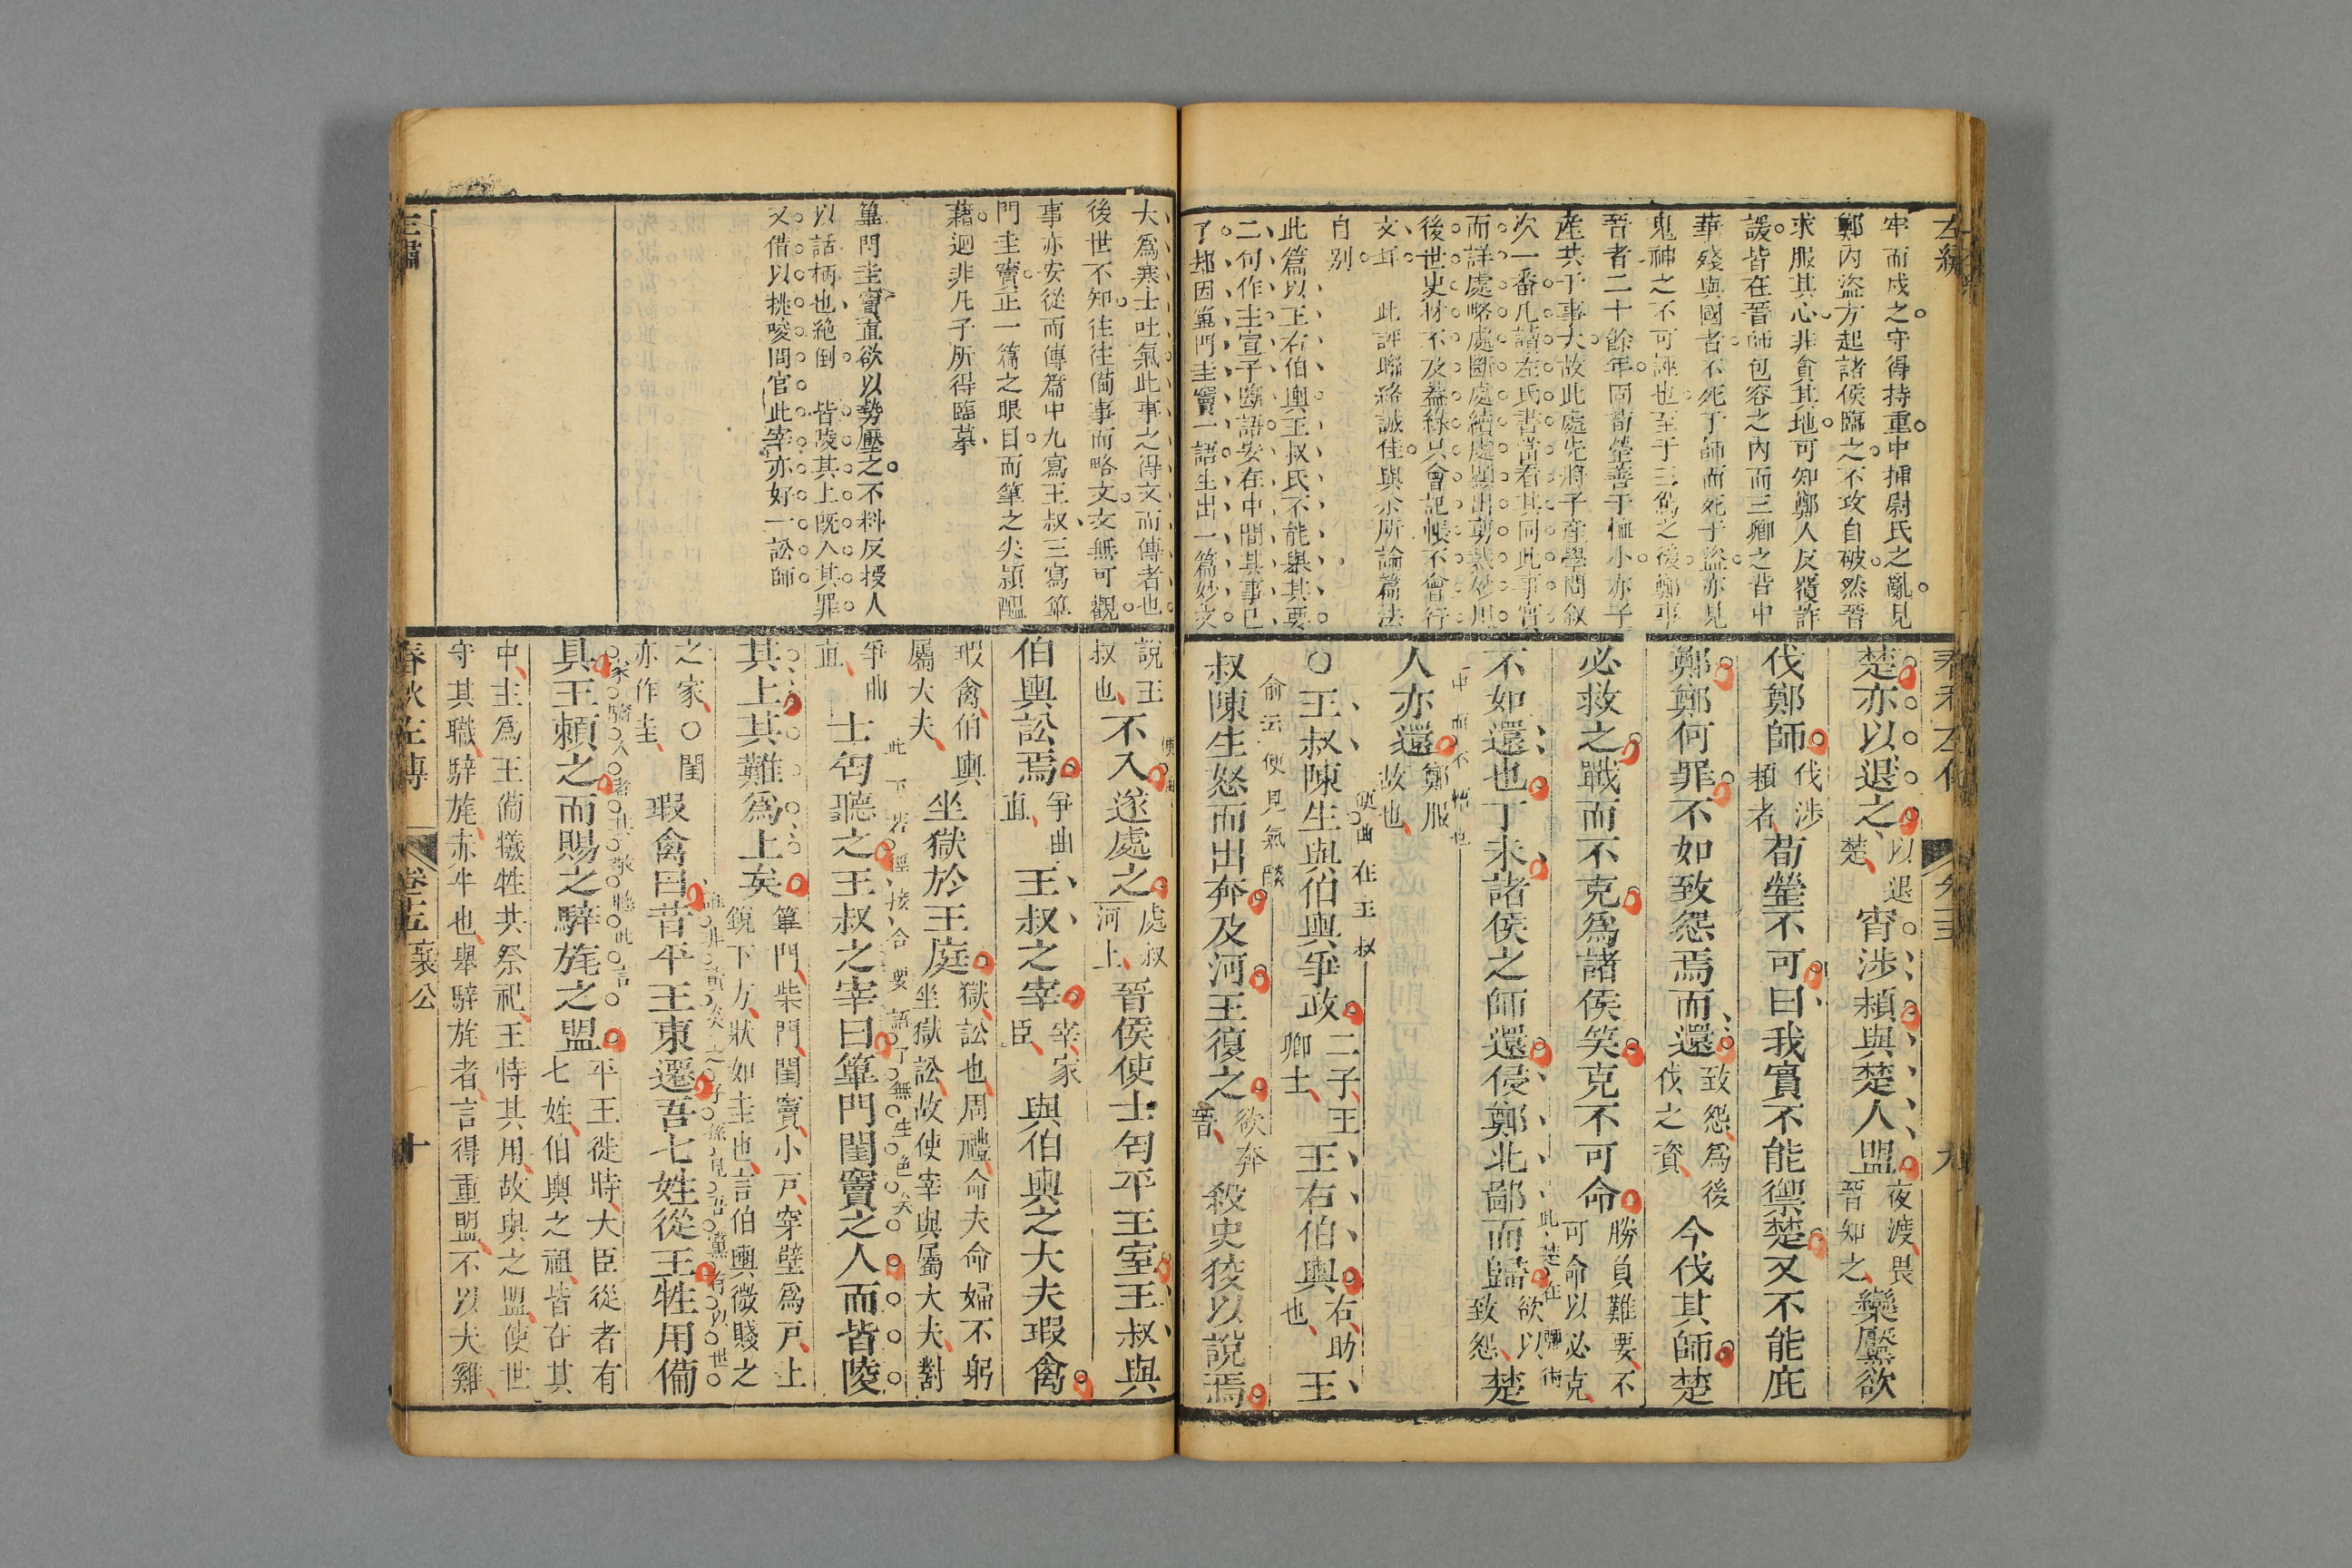 左繡
牢而戍之守得持重中捕尉氏之亂見
鄭內盜方起諸侯臨之不攻自破然晉
求服其心非貪其地可知鄭人反覆詐
諼皆在晉師包容之內而三卿之背中
華殘與國者不死于師而死于盜亦見
鬼神之不可誣也至于三駕之後鄭事
晉者二十餘年固荀罃善于恤小亦子
產共于事大故此處先將子產學問敘
次一番凡讀左氏書當看其同此事實
而詳處略處斷處續處顯出剪裁妙用
後世史材不及葢緣只會記帳不會行
文耳 此評聯絡誠佳與余所論篇法
自別
此篇以王右伯輿王叔氏不能舉其要
二句作主宣子斷語安在中間其事已
了却因篳門圭竇一語生出一篇妙文
春秋左傳
卷十五
九
楚亦以退之以退楚宵涉潁與楚人盟夜渡畏晉知之欒黶欲
伐鄭師伐涉潁者荀罃不可曰我實不能禦楚又不能庇
鄭鄭何罪不如致怨焉而還致怨爲後伐之資今伐其師楚
必救之戰而不克爲諸侯笑克不可命勝負難要不可命以必克
此楚在術
不如還也丁未諸侯之師還侵鄭北鄙而歸欲以致怨楚
中而不悟也
人亦還鄭服故也
便曲在王叔
○王叔陳生與伯輿爭政二子王卿士王右伯輿右助也王
俞云便見氣餒
叔陳生怒而出奔及河王復之欲奔晉殺史狡以說焉
大爲寒士吐氣此事之得文而傳者也
後世不知往往備事而略文文無可觀
事亦安從而傳篇中九寫王叔三寫篳
門圭竇正一篇之眼目而筆之尖頴醞
藉迥非凡子所得臨摹
篳門圭竇直欲以勢壓之不料反授人
以話柄也絶倒 皆陵其上旣入其罪
又借以挑唆問官此宰亦好一訟師
說王叔也不入遂處之處叔河上晉侯使士匄平王室王叔與
伯輿訟焉爭曲直王叔之宰宰家臣與伯輿之大夫瑕禽
瑕禽伯輿屬大夫坐獄於王庭獄訟也周禮命夫命婦不躬坐獄訟故使宰與屬大夫對
此下若徑接合要語了無生色矣
爭曲直士匄聽之王叔之宰曰篳門閨竇之人而皆陵
其上其難爲上矣篳門柴門閨竇小戶穿壁爲戶上銳下方狀如圭也言伯輿微賤之
之家○閨亦作圭瑕禽曰昔平王東遷吾七姓從王牲用備
具王賴之而賜之騂旄之盟平王徙時大臣從者有七姓伯輿之祖皆在其
中主爲王備犧牲共祭祀王恃其用故與之盟使世
守其職騂旄赤牛也舉騂旄者言得重盟不以犬雞
左繡
春秋左傳
卷十五襄公
十